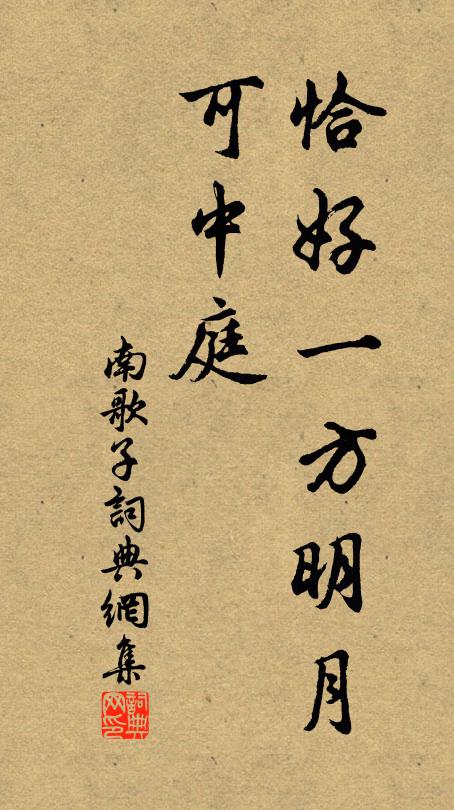 恰好一方明月
可中庭
南歌子詞典網集
詞典
网印